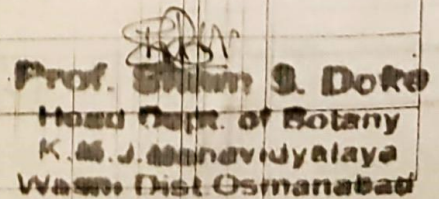 Prof. S. Doke
Head Dept. of Botany
K.M.J. Mahavidyalaya
Washi Dist Osmanabad